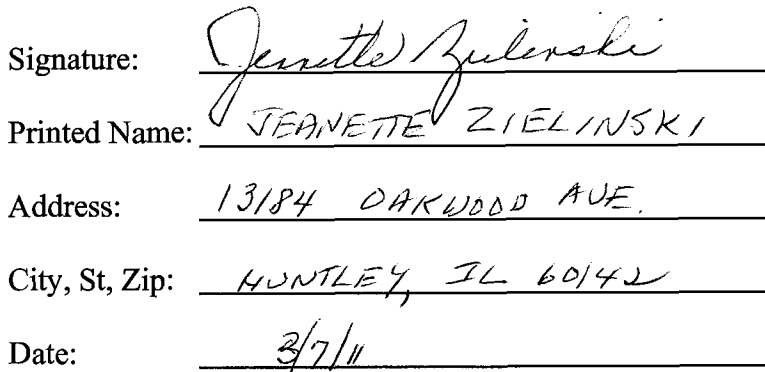 Signature: Jeanette Zielinski
Printed Name: JEANETTE ZIELINSKI
Address: 13184 OAKWOOD AVE.
City, St, Zip: HUNTLEY, IL 60142
Date: 3/7/11